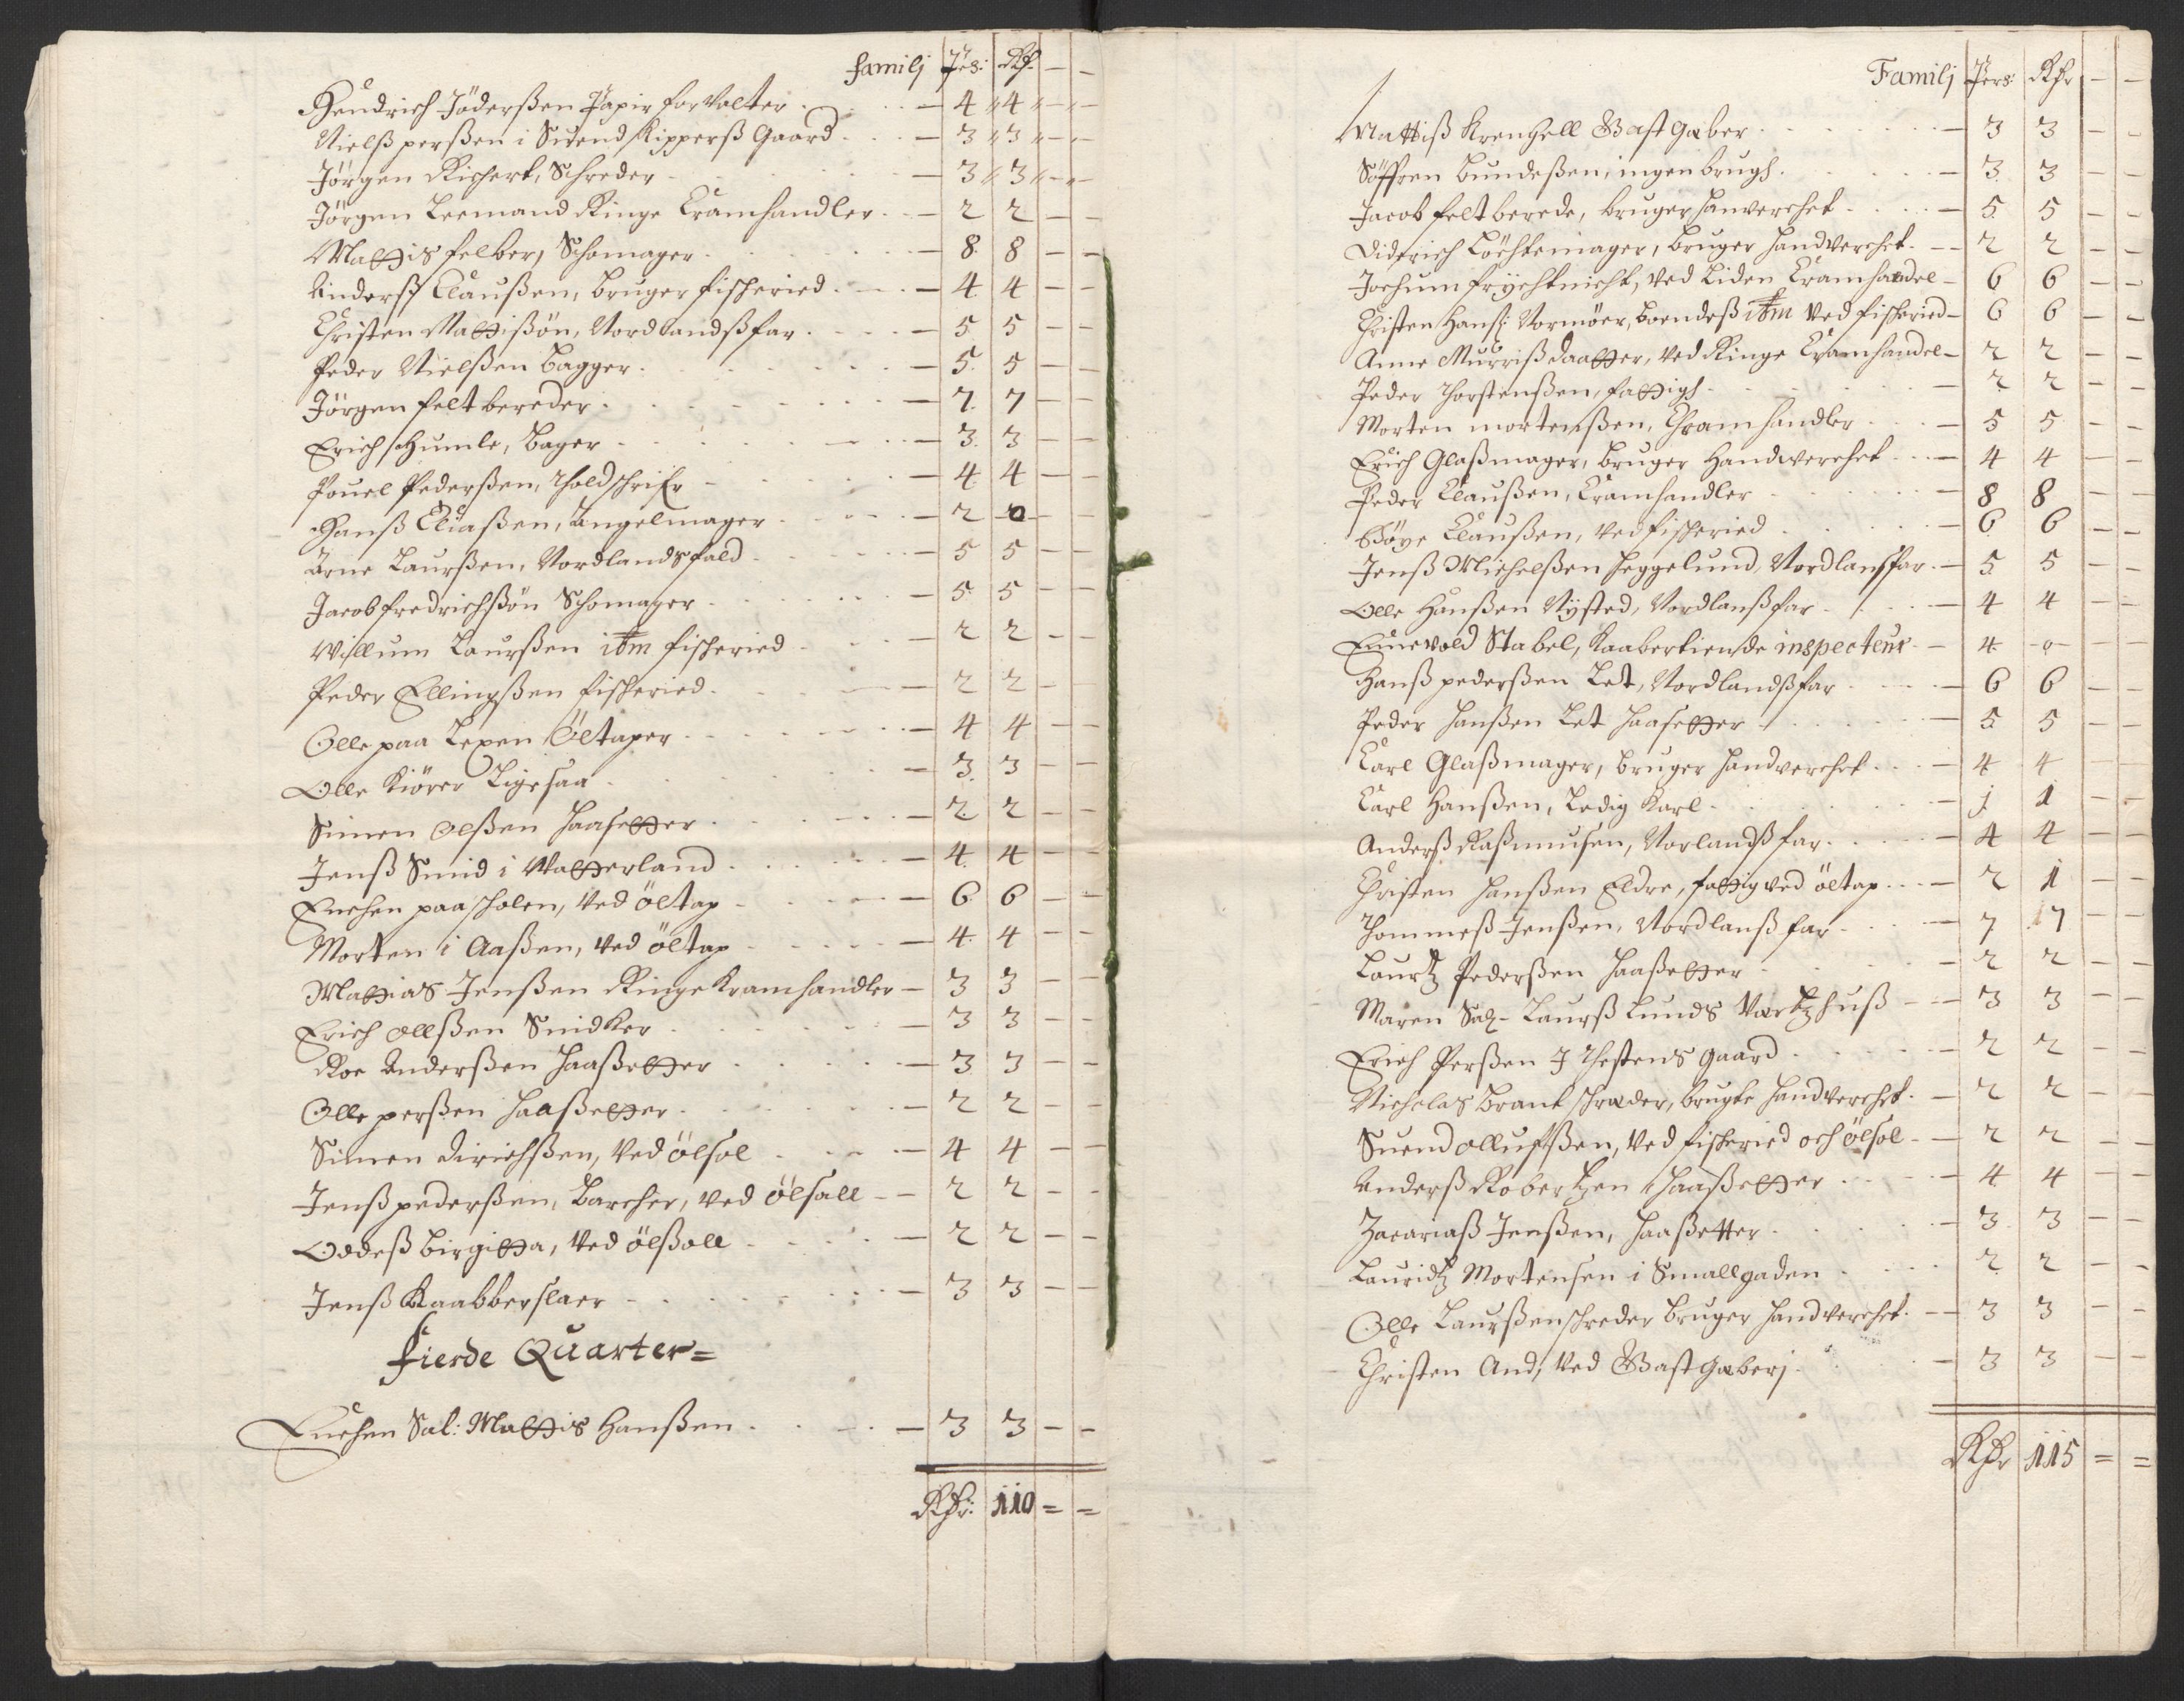 familj Pers: Rdr
Hendrich Föderßen Papir forvalter - 4 4 - -
Nielß perßen i Suend Kipperß Gaard - 3 3 - -
Jörgen Richert, Schreder - 3 3 - -
Jörgen Leemand Ringe Cramhandler - 2 2 - -
Mattis felber, Schomager - 8 8 - -
Anderß Claußen, bruger fischeried - 4 4 - -
Christen Mattißön, Nordlandßfar - 5 5 - -
Peder Nielßen Bagger - 5 5 - -
Jörgen felt bereder - 7 7 - -
Erich Humle, bager - 3 3 - -
Pouel Pederßen, Thold schrifr - 4 4 - -
Hanß Eliaßen, Angelmager - 2 0 - -
Arne Laurßen, Nordlandsfald - 5 5 - -
Jacob fredrichßön Schomager - 5 5 - -
Willum Laurßen itm fischeried - 2 2 - -
Peder Ellingßen fischeried - 2 2 - -
Olle paa Lepen Öltaper - 4 4 - -
Olle Kiörer Ligesaa - 3 3 - -
Simen Olßen haasetter - 2 2 - -
Jenß Smid i Vatterland - 4 4 - -
Enchen paa scholen, ved öltap - 6 6 - -
Morten i Aaßen, ved öltap - 4 4 - -
Mattias Jenßen Ringe Kramhandler - 3 3 - -
Erich ollßen Snidker - 3 3 - -
Roe Anderßen haaßetter - 3 3 - -
Olle perßen haaßetter - 2 2 - -
Simen dirichßen, ved ölsol - 4 4 - -
Jenß pederßen, Barcher, ved ölsall - 2 2 - -
Oddeß birgitta, ved ölßoll - 2 2 - -
Jenß Kaabberslaer - 3 3 - -
fierde Quarter =
Enchen Sal: Mattis Hanßen - 3 3 - -
Rdr: 110 = =
Familj Pers: Rdr - -
Mattiß Krenzell Vast Gæber - 3 3 - -
Söffren Bundeßen, ingen brugh - 3 3 - -
Jacob felt berede, bruger hanverchet - 5 5 - -
Didrich Böchtemager, bruger handverchet - 2 2 - -
Jochum frychtnicht, ved Liden Cramhandel - 6 6 - -
Christen Hanß: Normöer, boendeß itm ved fischeried - 6 6 - -
Anne Murrißdaatter, ved Ringe Cramhandel - 2 2 - -
Peder Thorstenßen, fattigh - 2 2 - -
Morten mortenßen, Chramhandler - 5 5 - -
Erich Glaßmager, bruger Handverchet - 4 4 - -
Peder Claußen, Cramhandler - 8 8 - -
Böye Claußen, ved fischeried - 6 6 - -
Jenß Michelßen Heggelund, Nordlanßfar - 5 5 - -
Olle Hanßen Nysted, Nordlanßfar - 4 4 - -
Enevold Stabel, Kaabertiende inspecteur - 4 - 0 - -
Hanß pederßen Let, Nordlandßfar - 6 6 - -
Peder Hanßen Let haasetter - 5 5 - -
Carl Glaßmager, bruger handverchet - 4 4 - -
Carl Hanßen, Ledig Karl - j 1 - -
Anderß Raßmusen, Norlandßfar - 4 4 - -
Christen Hanßen Eldre, fattig ved öltap - 2 1 - -
Thommeß Jenßen, Nordlanßfar - 7 17 - -
Laurtz Pederßen haaßetter - 2 2 - -
Maren Sal- Laurß Lunds Værtzhuß - 3 3 - -
Erich Perßen I Thestens gaard - 2 2 - -
Nicholas Brant schræder, brugte handverchet - 2 2 - -
Suend ollufßen, ved fischeried och ölsol - 2 2 - -
Anderß Robertzen haaßetter - 4 4 - -
Zacariaß Jenßen, haaßetter - 3 3 - -
Lauridtz Mortensen i Smallgaden - 2 2 - -
Olle Laurßen schreder bruger handverchet - 3 3 - -
Christen And, ved Vast Gæberj - 3 3 - -
Rdr 115 = =